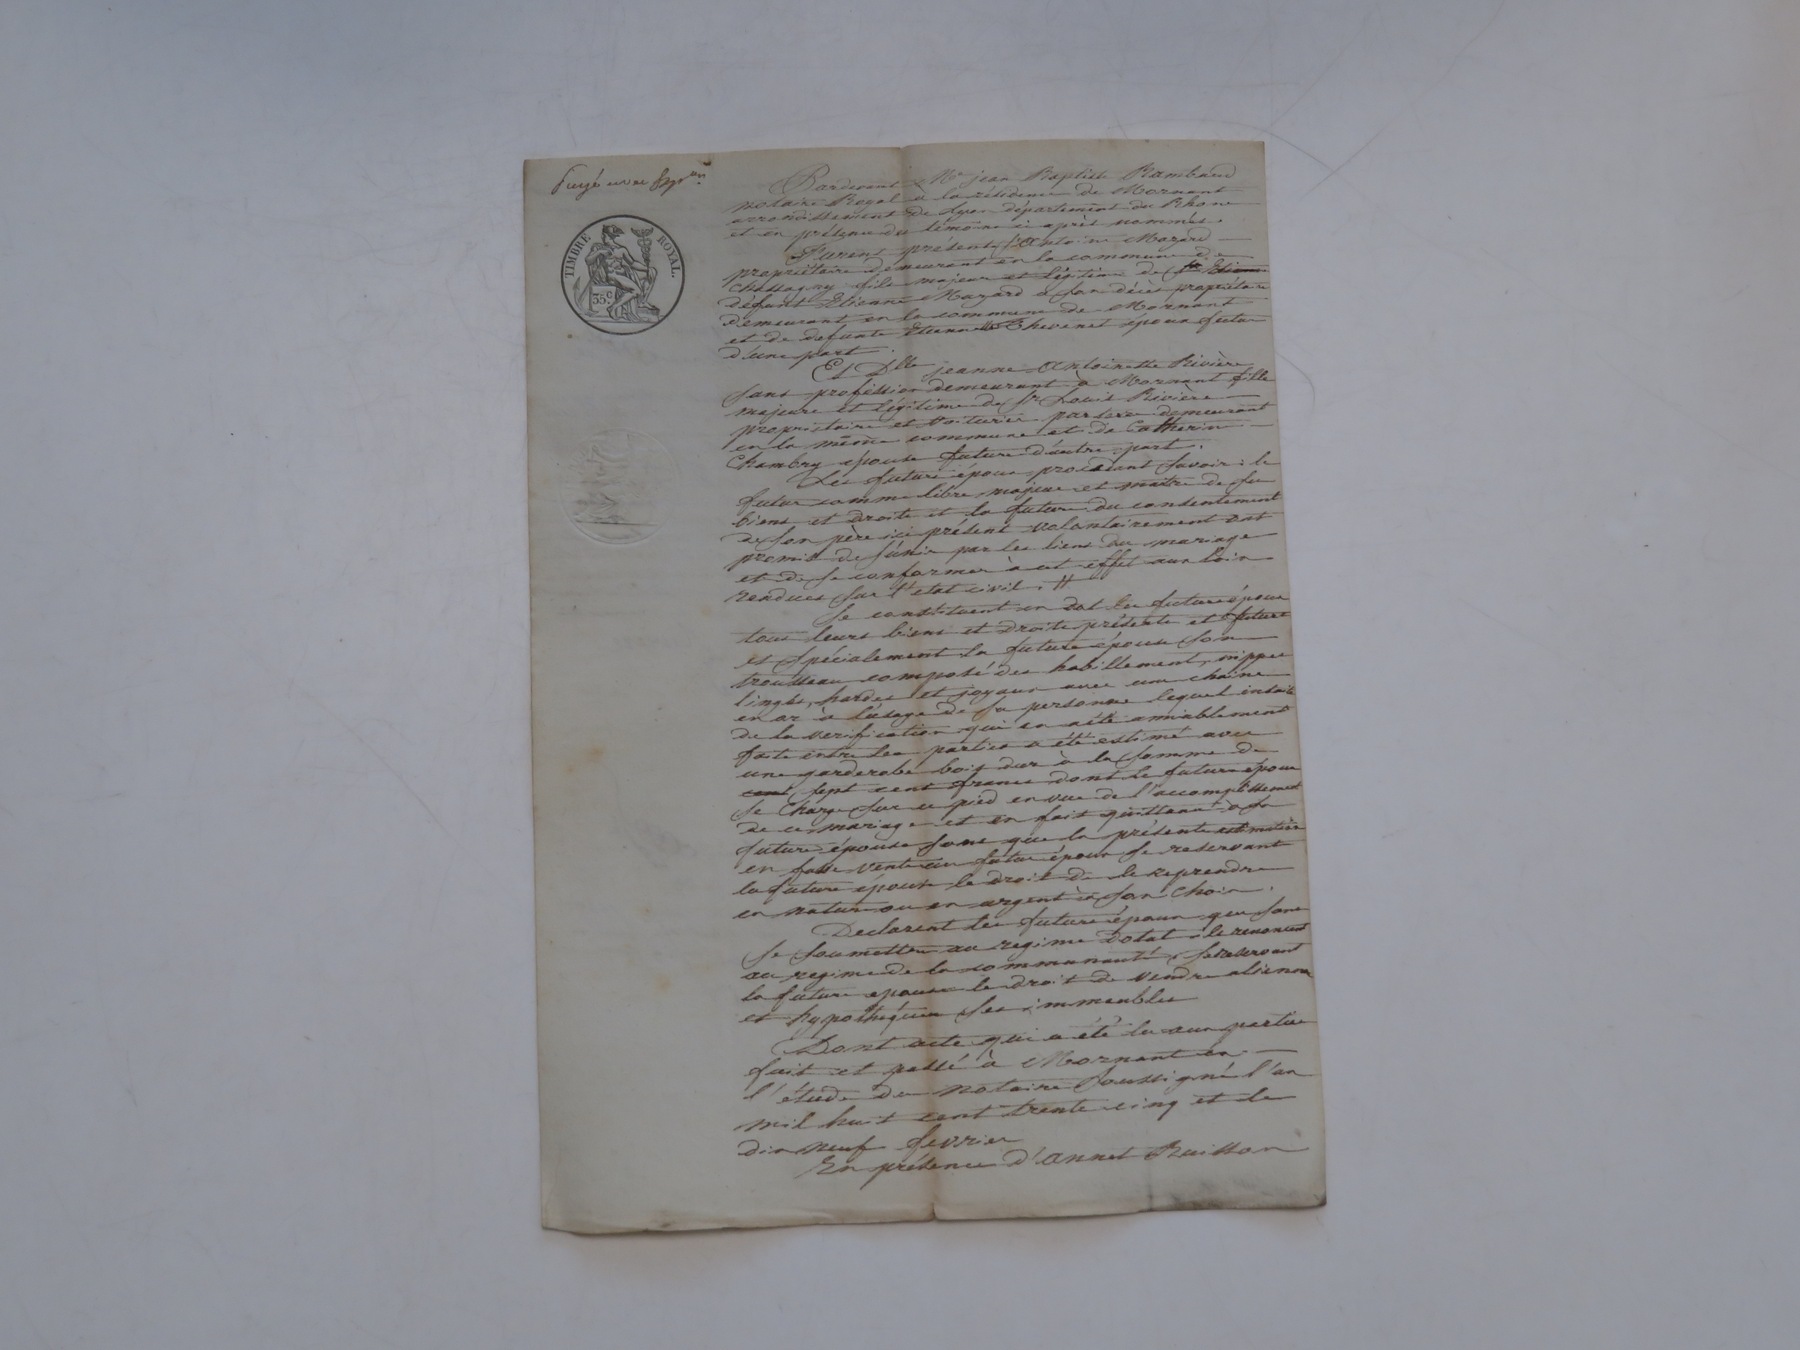 TIMBRE ROYAL.
35c.
Pardevant Me jean Baptiste Rambaud
notaire Royal à la résidence de Mornant
arrondissement de Lyon département du Rhone
et en présence des témoins ci après nommés.
Furent présents Sr Antoine Mazard
propriétaire demeurant en la commune de
Chassagny fils majeur et légitime de
défunt Etienne Mazard à son décès propriétaire
demeurant en la commune de Mornant
et de defunte Etiennette Thevenet époux futur
d'une part.
Et Dlle jeanne Antoinette Rivière
sans profession demeurant à Mornant fille
majeure et légitime de Sr Louis Rivière
propriétaire et voiturier par terre demeurant
en la même commune et de Catherine
Chambry épouse future d'autre part.
Les futurs époux procédant savoir : le
futur comme libre, majeur et maître de ses
biens et droits et la future du consentement
de son père ici présent volontairement ont
promis de s'unir par les liens du mariage
et de se conformer à cet effet aux loix
rendues sur l'état civil. //
Se constituent en dot les futurs époux
tous leurs biens et droits présents et futurs
et spécialement la future épouse son
trousseau composé des habillement, nippes
linges, hardes et joyaux avec une chaîne
en or à l'usage de sa personne lequel ensuite
de la vérification qui en a été amiablement
faite entre les parties a été estimé avec
une garderobe bois dur à la somme de
cent sept cent francs dont le futur époux
se charge sur ce pied en vue de l'accomplissement
de ce mariage et en fait quittance à sa
future épouse sans que la présente estimation
en fasse vente au futur époux se reservant
la future épouse le droit de le reprendre
en nature ou en argent à son choix.
Declarent les futurs époux que sans
se soumettre au regime dotal ils renoncent
au regime de la communauté, se reservant
la future epouse le droit de vendre aliener
et hypothéquer ses immeubles
Dont acte qui a été lu aux parties
fait et passé à Mornant en
l'étude du notaire soussigné l'an
mil huit cent trente cinq et le
dix neuf fevrier
En présence d'Annet Buisson